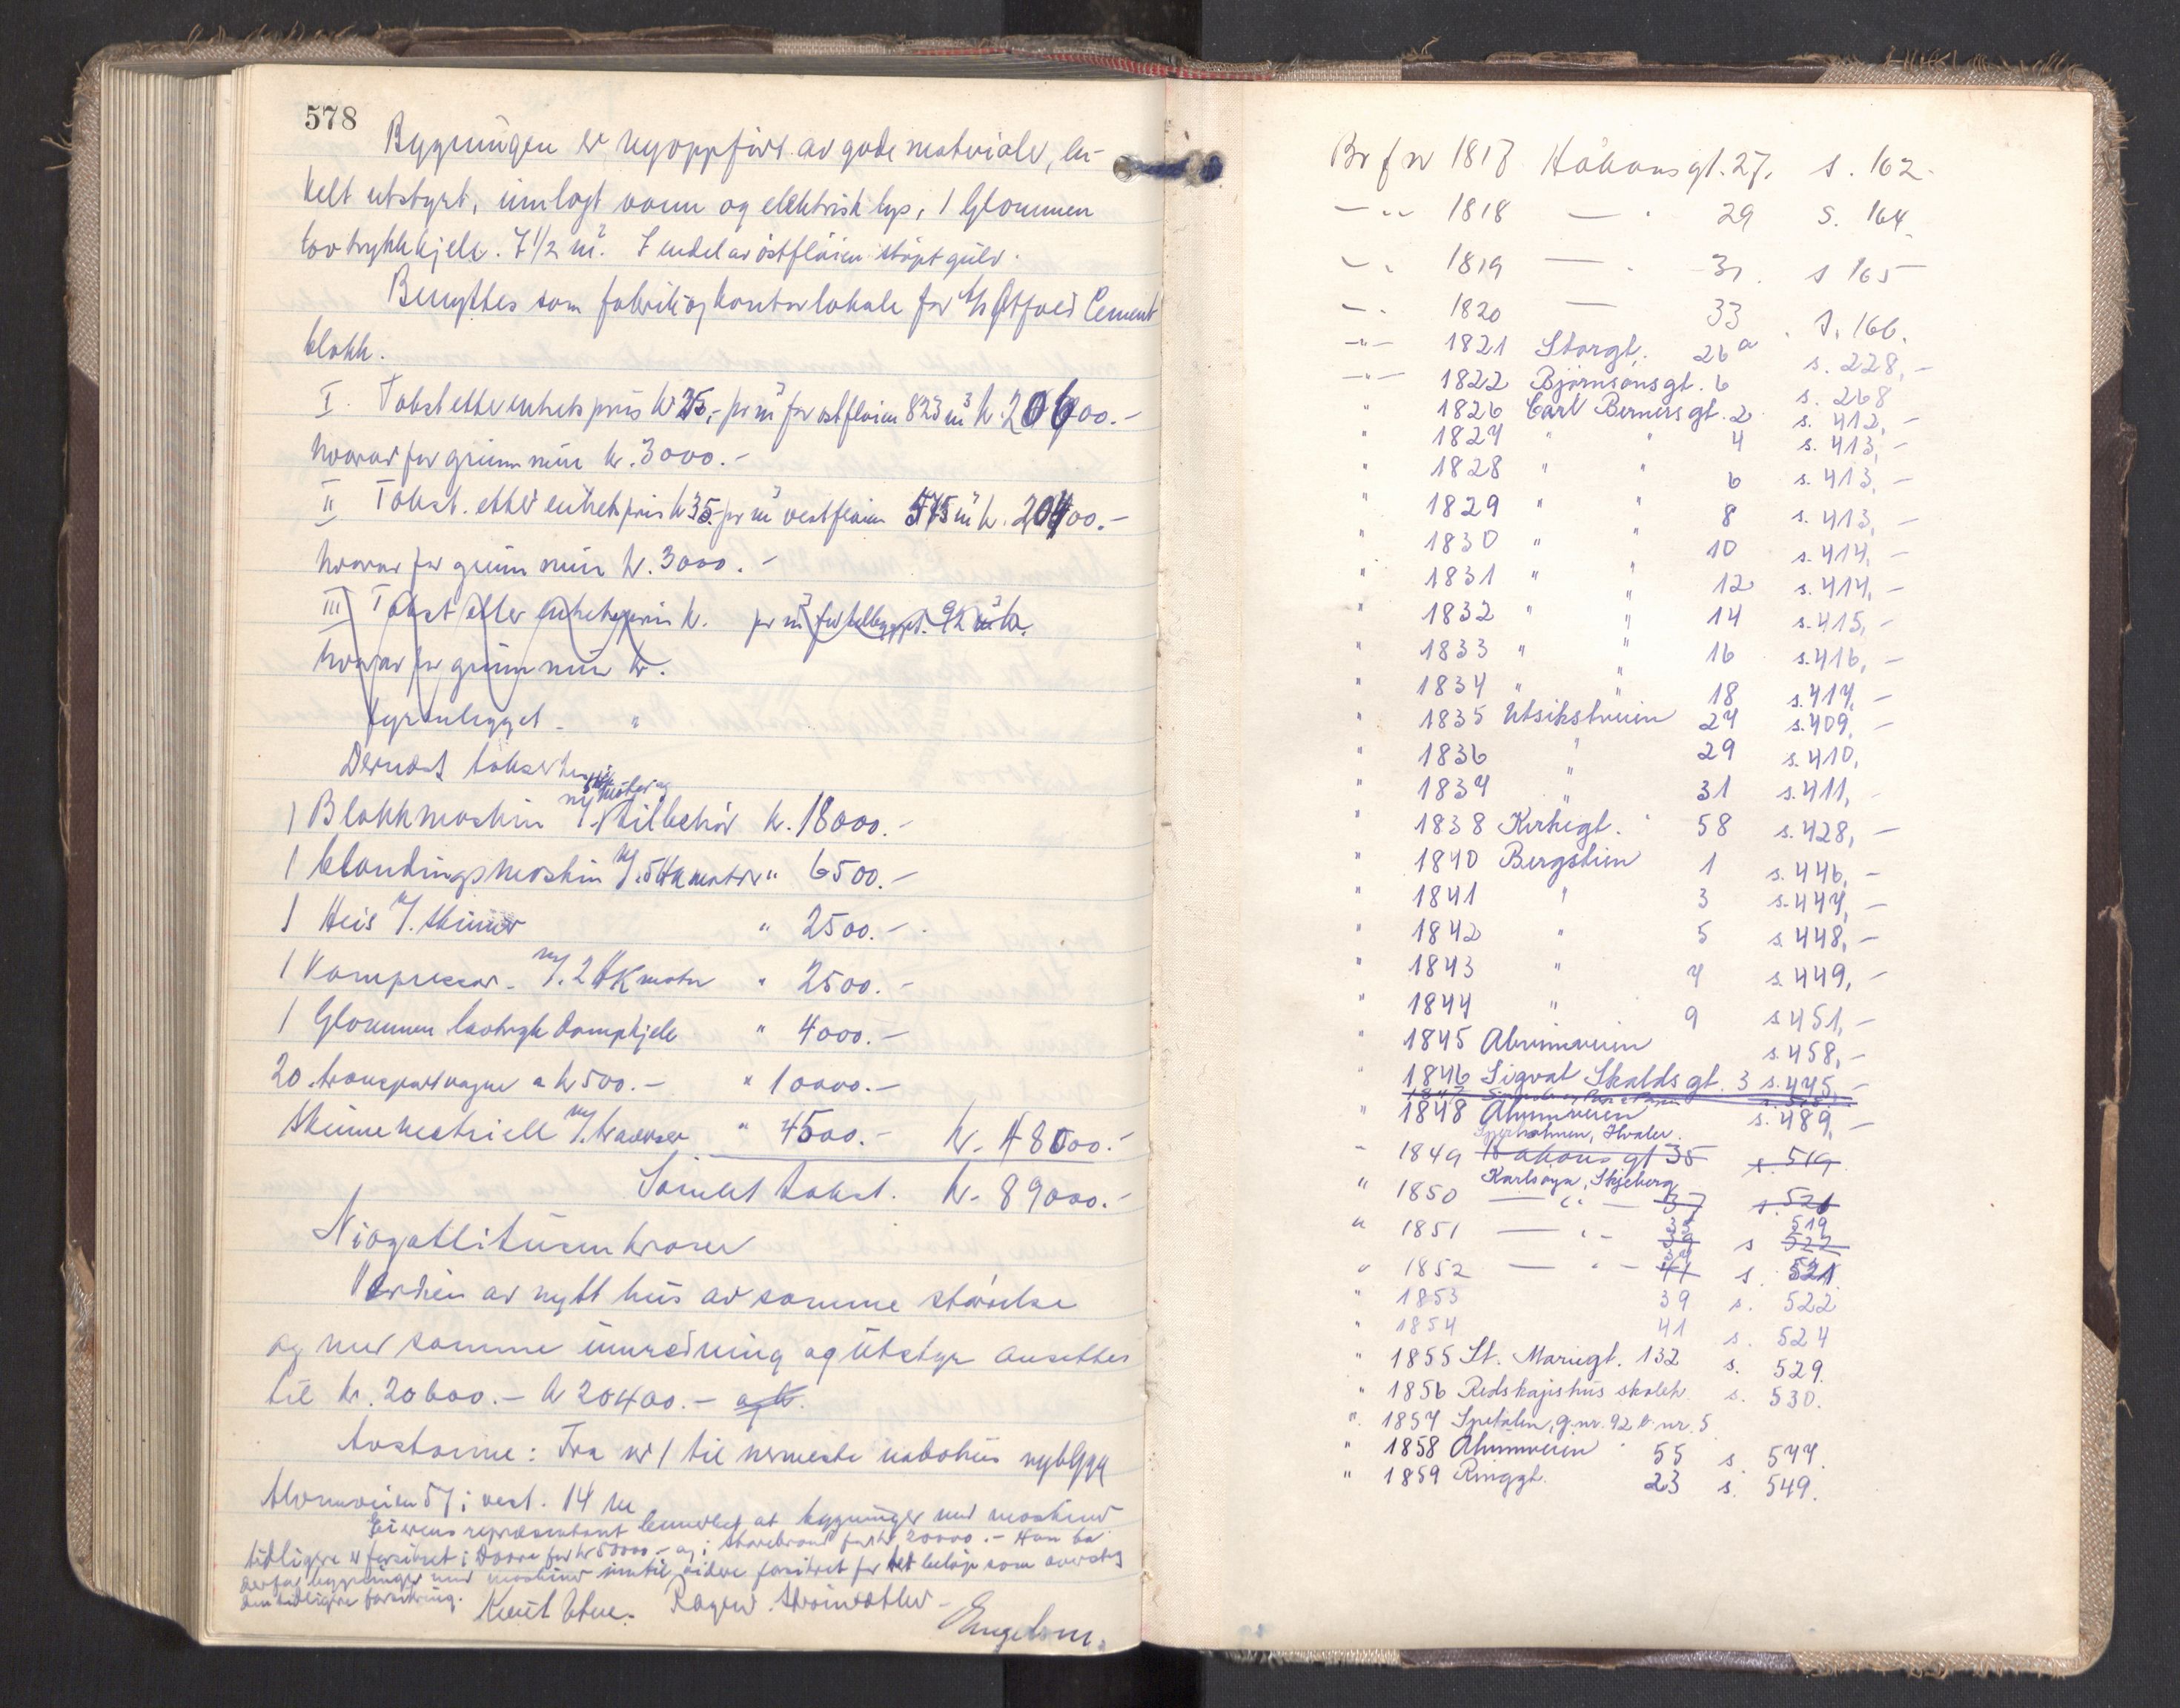 578
Bygningen er nyoppført av gode materialer, en-
kelt utstyrt, innlagt vann og elektrisk lys, 1 Glommen
lavtrykkkjele. 7 1/2 m². I endel av østfløien støpt gulv.
Benyttes som fabrikk og kontorlokale for A/s Østfold Cement
blokk.
I. Takst etter enhetspris kr 25,- pr m³ for østfløien 823 m³ kr. 20600.-
hvorav for grunnmur kr. 3000.-
II Takst. etter enhetspris kr 35.- pr m³ vestfløien 575 m³ kr. 20400.-
hvorav for grunnmur kr. 3000.-
III Takst etter enhetspris kr. pr m³ for 92 m³ kr.
hvorav for grunnmur kr.
fyranlegget - "
Dernæst takseres
1 Blokkmaskin m/ motor og tilbehør kr. 18000.-
1 blandingsmaskin m/. 5 Hk motor " 6500.-
1 Heis m/. skinner " 2500.-
1 Kompressor. m/. 2 HK motor " 2500.-
1 Glommen lavtrykk dampkjele " 4000.-
20 transportvogner a kr 500.- " 10000.-
Skinnemateriell m/. traverser " 4500.- kr. 48000.-
Samlet takst. kr. 89000.-
Niogåttitusen kroner
Verdien av nytt hus av samme størrelse
og med samme innredning og utstyr ansettes
til kr. 20600.- kr 20400.- og kr.
Avstanne: Fra nr 1 til nermeste nabohus nybygg
Alvimveien 57 i vest. 14 m
Eierens representant bemerket at bygninger med maskiner
tidligere er forsikret i Dovre for kr 50000.- og i Storebrand for kr 20000.- Han ba
derfor bygninger med maskiner inntil videre forsikret for det beløp som oversteg
den tidligere forsikring.
Knut Ragnv. Engelsen.
Br f nr 1817 Håkons gt. 27. s. 162.
-"- 1818 — " 29 s. 164.
-"- 1819 — " 31. s 165
-"- 1820 — 33 s. 166.
-"- 1821 Storgt. 26 a s. 228,-
-"- 1822 Bjørnsons gt. 6 s. 268
" 1826 Carl Berners gt. 2 s. 412,-
" 1827 " " 4 s. 413,-
" 1828 " " 6 s. 413,-
" 1829 " " 8 s. 413,-
" 1830 " " 10 s. 414,-
" 1831 " " 12 s. 414,-
" 1832 " " 14 s. 415,-
" 1833 " " 16 s. 416,-
" 1834 " " 18 s. 417,-
" 1835 Utsiktsveien 27 s. 409,-
" 1836 " 29 s. 410,
" 1837 " 31 s. 411,-
" 1838 Kirkegt. 58 s. 428,-
" 1840 Bergstien 1 s. 446,-
" 1841 " 3 s. 447,-
" 1842 " 5 s. 448,-
" 1843 " 7 s. 449,-
" 1844 " 9 s 451,-
" 1845 Alvimveien s. 458,-
" 1846 Sigvat Skalds gt. 3 s. 475,-
1847
" 1848 Alvimveien s. 489,-
Hvaler.
" 1849 Håkons gt 35 s. 519.
Karlsøya, Skjeberg
" 1850 — " — 37 s. 521
35 519
" 1851 — " - 39 s 522
37
" 1852 — " - 41 s. 521
" 1853 39 s. 522
" 1854 41 s. 524
" 1855 St. Mariegt. 132 s. 529.
" 1856 Redskapshus skoleh. s. 530.
" 1857 Spetalen, g.nr. 92 b.nr. 5
" 1858 Alvimveien 55 s. 547.
" 1859 Ringgt. 23 s. 549.